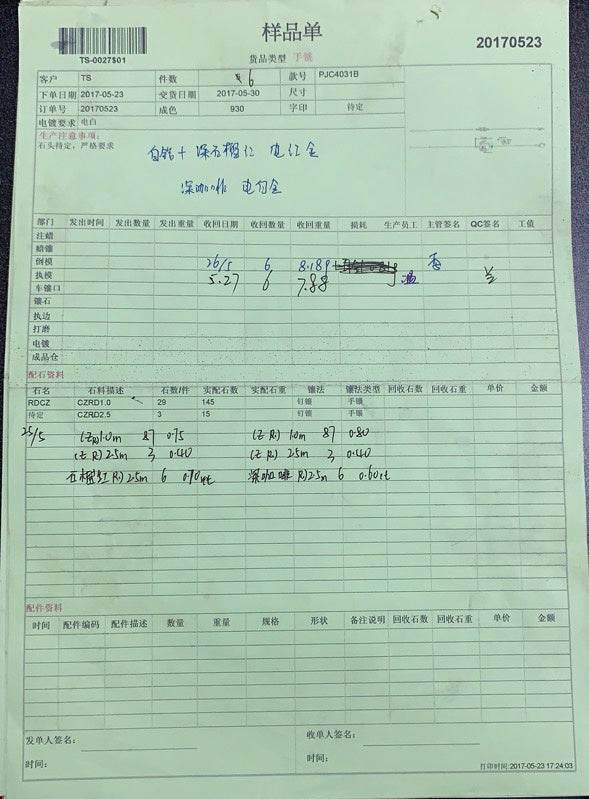 样品单
TS-0027S01
货品类型 手链
20170523
客户 TS 件数 6 款号 PJC4031B
下单日期 2017-05-23 交货日期 2017-05-30 尺寸
订单号 20170523 成色 930 字印 待定
电镀要求 电白
生产注意事项:
石头待定，严格要求
白锆+深石榴红 电红金
深咖啡 电白金
部门 发出时间 发出数量 发出重量 收回日期 收回数量 收回重量 损耗 生产员工 主管签名 QC签名 工值
注蜡
蜡镶
倒模 26/5 6 8.189
执模 5.27 6 7.88
车镶口
镶石
执边
打磨
电镀
成品仓
配石资料
石名 石料描述 石数/件 实配石数 实配石重 镶法 镶法类型 回收石数 回收石重 单价 金额
RDCZ CZRD1.0 29 145 钉镶 手镶
待定 CZRD2.5 3 15 钉镶 手镶
25/5 (Z R) 1.0m 87 0.75 (Z R) 1.0m 87 0.80
(Z R) 2.5m 3 0.40 (Z R) 2.5m 3 0.40
石榴红 R) 2.5m 6 0.70ct 深咖啡 R) 2.5m 6 0.60ct
配件资料
时间 配件编码 配件描述 数量 重量 规格 形状 备注说明 回收石数 回收石重 单价 金额
发单人签名: 收单人签名:
时间: 时间:
打印时间:2017-05-23 17:24:03